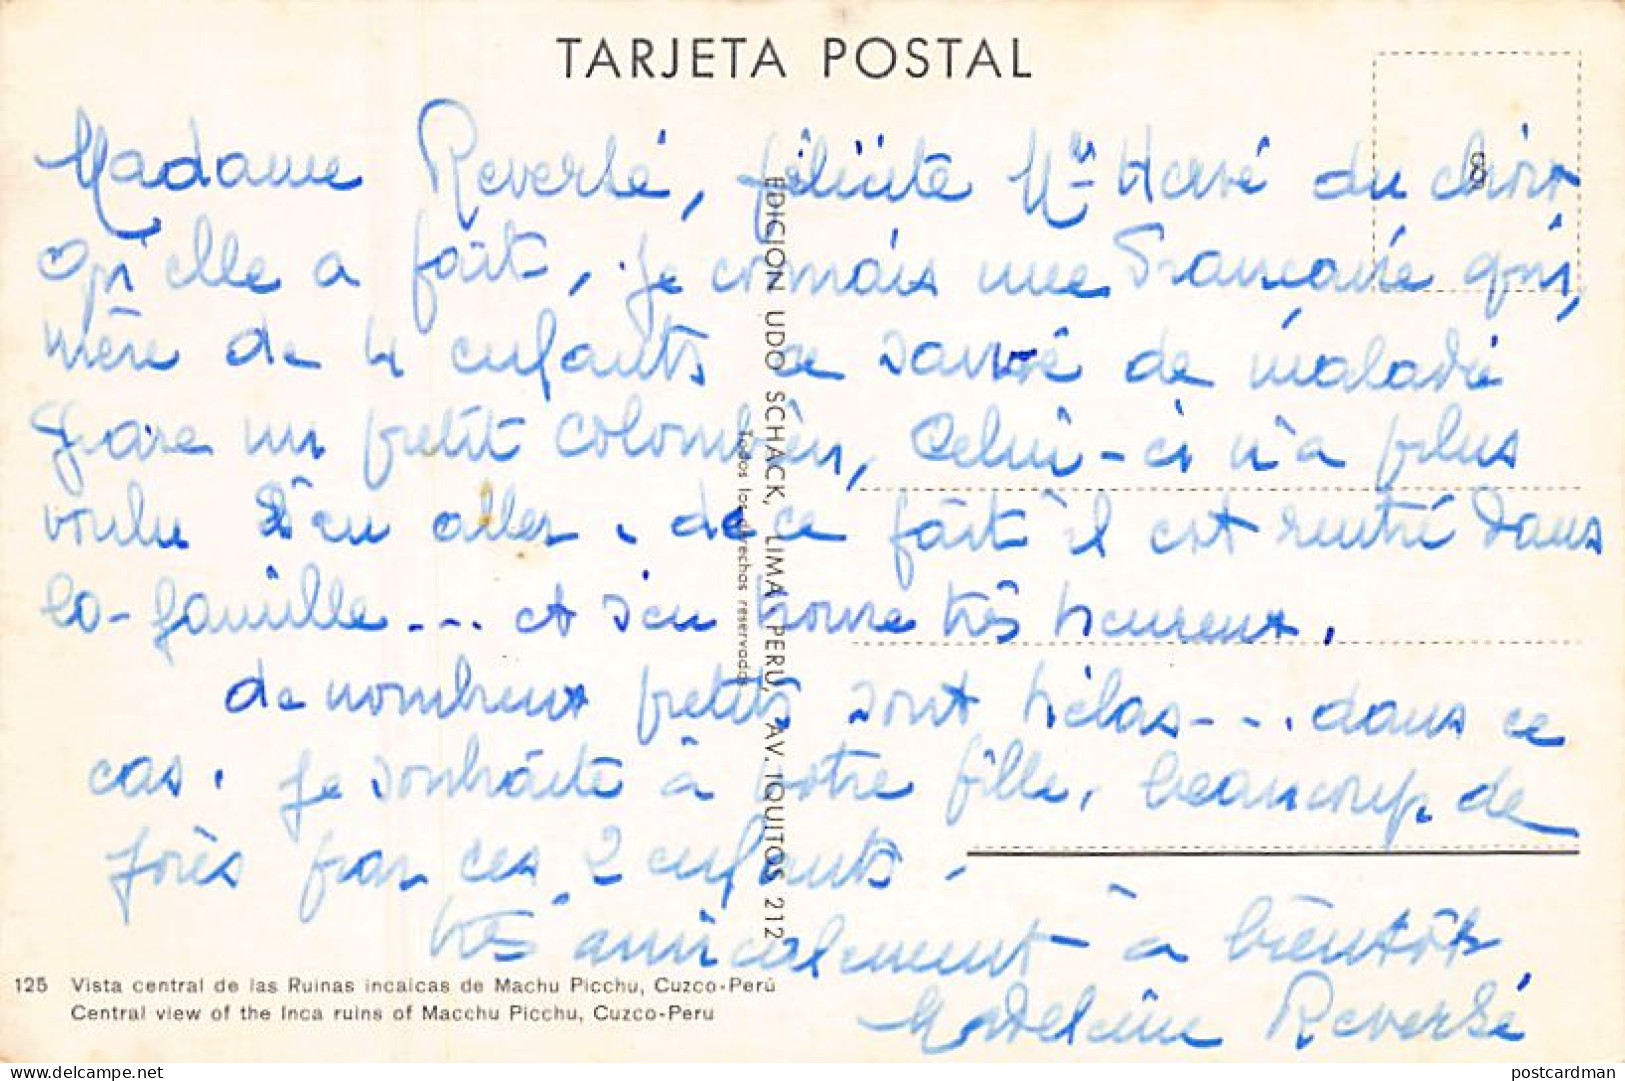 TARJETA POSTAL
Madame Reversé, félicite Mr Hervé du choix
qu'elle a fait, je connais une Française qui,
mère de 4 enfants a sauvé de maladie
grave un petit colombien, Celui-ci n'a plus
voulu s'en aller. de ce fait il est rentré dans
la famille... et s'en trouve très heureux.
de nombreux petits sont hélas... dans ce
cas. je souhaite à votre fille, beaucoup de
joies par ces 2 enfants.
très amicalement à bientôt
Madeleine Reversé
EDICION UDO SCHACK, LIMA, PERU, AV. IQUITOS 212
Todos los derechos reservados
125 Vista central de las Ruinas incaicas de Machu Picchu, Cuzco-Perú
Central view of the Inca ruins of Macchu Picchu, Cuzco-Peru
delcampe.net
postcardman